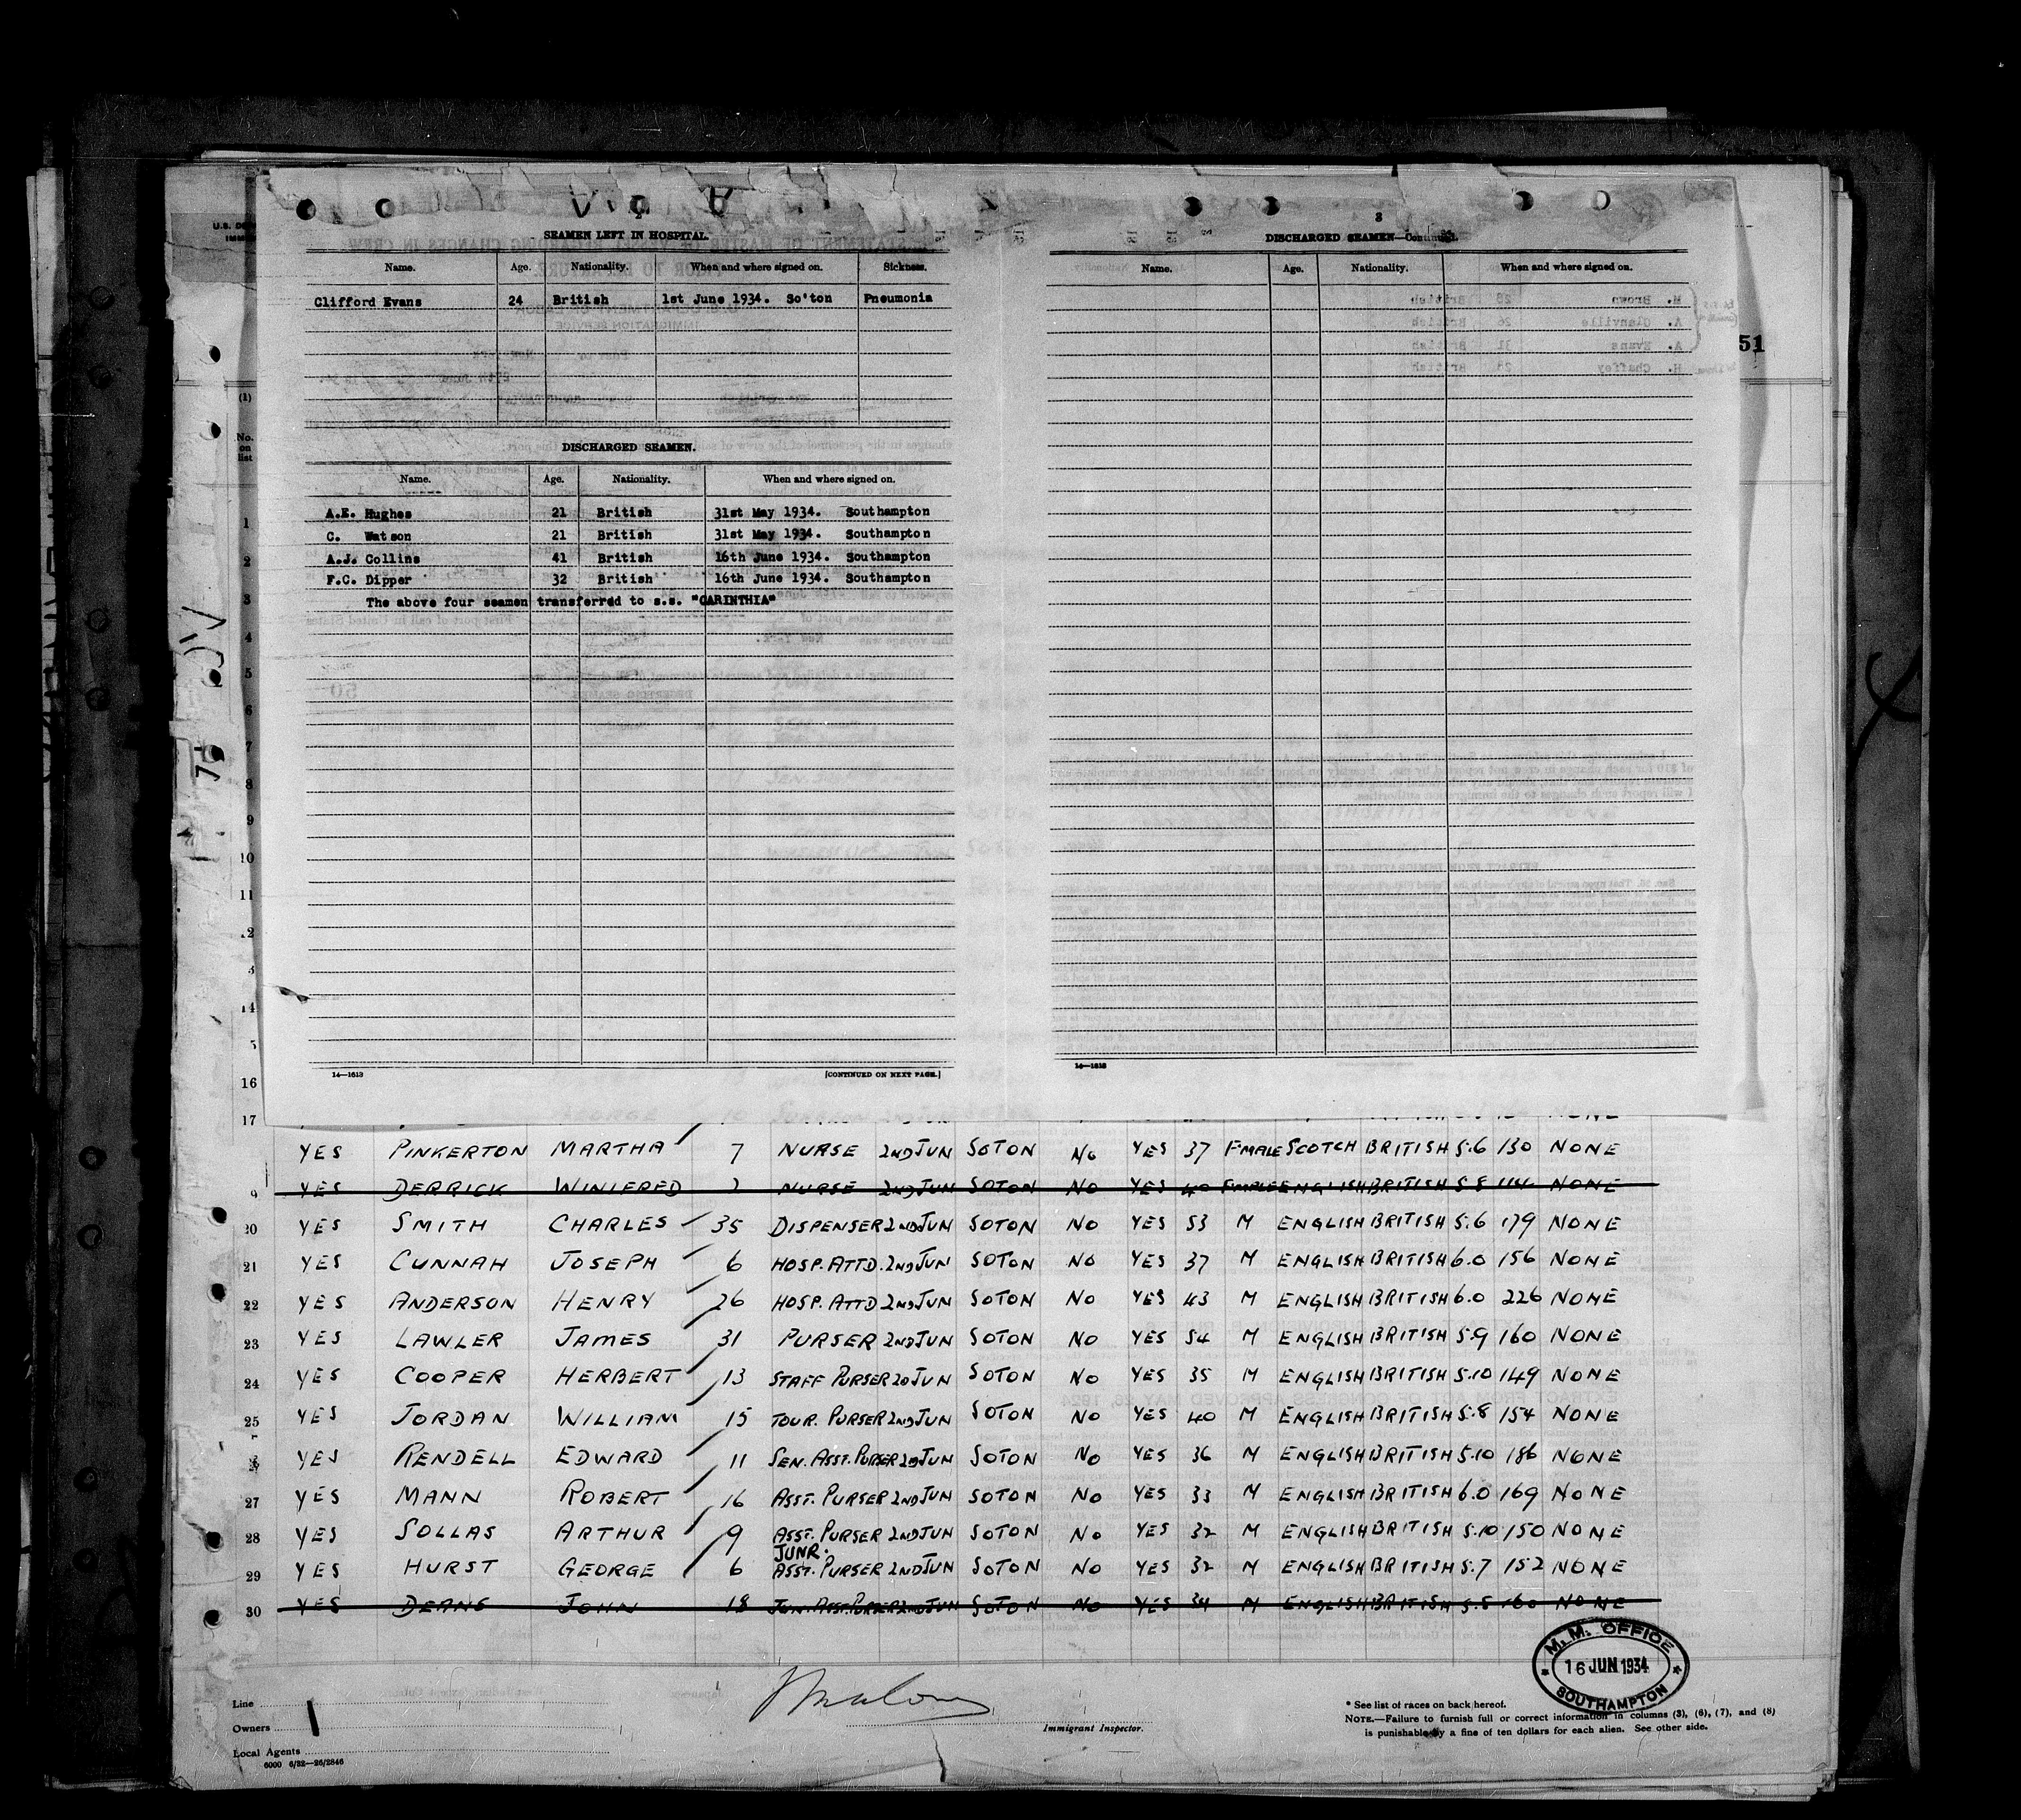 SEAMEN LEFT IN HOSPITAL.
Name. Age. Nationality. When and where signed on. Sickness.
Clifford Evans 24 British 1st June 1934. So'ton Pneumonia
DISCHARGED SEAMEN.
Name. Age. Nationality. When and where signed on.
A.E. Hughes 21 British 31st May 1934. Southampton
C. Watson 21 British 31st May 1934. Southampton
A.J. Collins 41 British 16th June 1934. Southampton
F.C. Dipper 32 British 16th June 1934. Southampton
The above four seamen transferred to s.s. "CARINTHIA"
14—1613 [CONTINUED ON NEXT PAGE.]
3
DISCHARGED SEAMEN—Continued.
Name. Age. Nationality. When and where signed on.
14—1613
51
(1)
No. on list
1
2
3
4
5
6
7
8
9
10
11
14
16
17
YES PINKERTON MARTHA 7 NURSE 2ND JUN SOTON NO YES 37 FMALE SCOTCH BRITISH 5.6 130 NONE
9 YES DERRICK WINIFRED 2 NURSE 2ND JUN SOTON NO YES 40 FMALE ENGLISH BRITISH 5.8 114 NONE
20 YES SMITH CHARLES 35 DISPENSER 2ND JUN SOTON NO YES 53 M ENGLISH BRITISH 5.6 179 NONE
21 YES CUNNAH JOSEPH 6 HOSP. ATTD. 2ND JUN SOTON NO YES 37 M ENGLISH BRITISH 6.0 156 NONE
22 YES ANDERSON HENRY 26 HOSP. ATTD 2ND JUN SOTON NO YES 43 M ENGLISH BRITISH 6.0 226 NONE
23 YES LAWLER JAMES 31 PURSER 2ND JUN SOTON NO YES 54 M ENGLISH BRITISH 5.9 160 NONE
24 YES COOPER HERBERT 13 STAFF PURSER 2D JUN SOTON NO YES 35 M ENGLISH BRITISH 5.10 149 NONE
25 YES JORDAN WILLIAM 15 TOUR. PURSER 2ND JUN SOTON NO YES 40 M ENGLISH BRITISH 5.8 154 NONE
YES RENDELL EDWARD 11 SEN. ASST. PURSER 2ND JUN SOTON NO YES 36 M ENGLISH BRITISH 5.10 186 NONE
27 YES MANN ROBERT 16 ASST. PURSER 2ND JUN SOTON NO YES 33 M ENGLISH BRITISH 6.0 169 NONE
28 YES SOLLAS ARTHUR 9 ASST. PURSER 2ND JUN SOTON NO YES 32 M ENGLISH BRITISH 5.10 150 NONE
JUNR.
29 YES HURST GEORGE 6 ASST. PURSER 2ND JUN SOTON NO YES 32 M ENGLISH BRITISH 5.7 152 NONE
30 YES DEANS JOHN 18 JUN. ASST. PURSER 2ND JUN SOTON NO YES 34 M ENGLISH BRITISH 5.8 160 NONE
M.M. OFFICE
16 JUN 1934
SOUTHAMPTON
Line
Owners
Local Agents
6000 6/32—26/2846
Immigrant Inspector.
* See list of races on back hereof.
NOTE.—Failure to furnish full or correct information in columns (3), (6), (7), and (8)
is punishable by a fine of ten dollars for each alien. See other side.